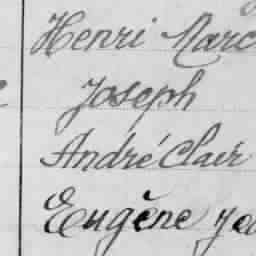 Henri Marc
Joseph
André Clair
Eugène